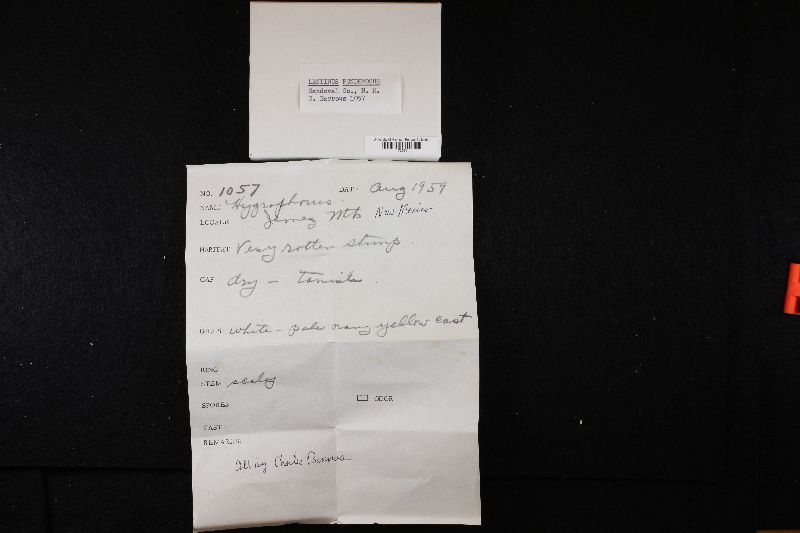 LENTINUS PONDEROSUS
Sandoval Co., N. M.
C. Barrows 1057
NO. 1057 DATE Aug 1959
NAME Hygrophorus.
LOCALE Jemez Mts New Mexico
HABITAT Very rotten stump.
CAP dry - tanish.
GILLS white - pale orang yellow cast
RING
STEM scaly
SPORES
ODOR
TASTE
REMARKS:
Charles Barrows